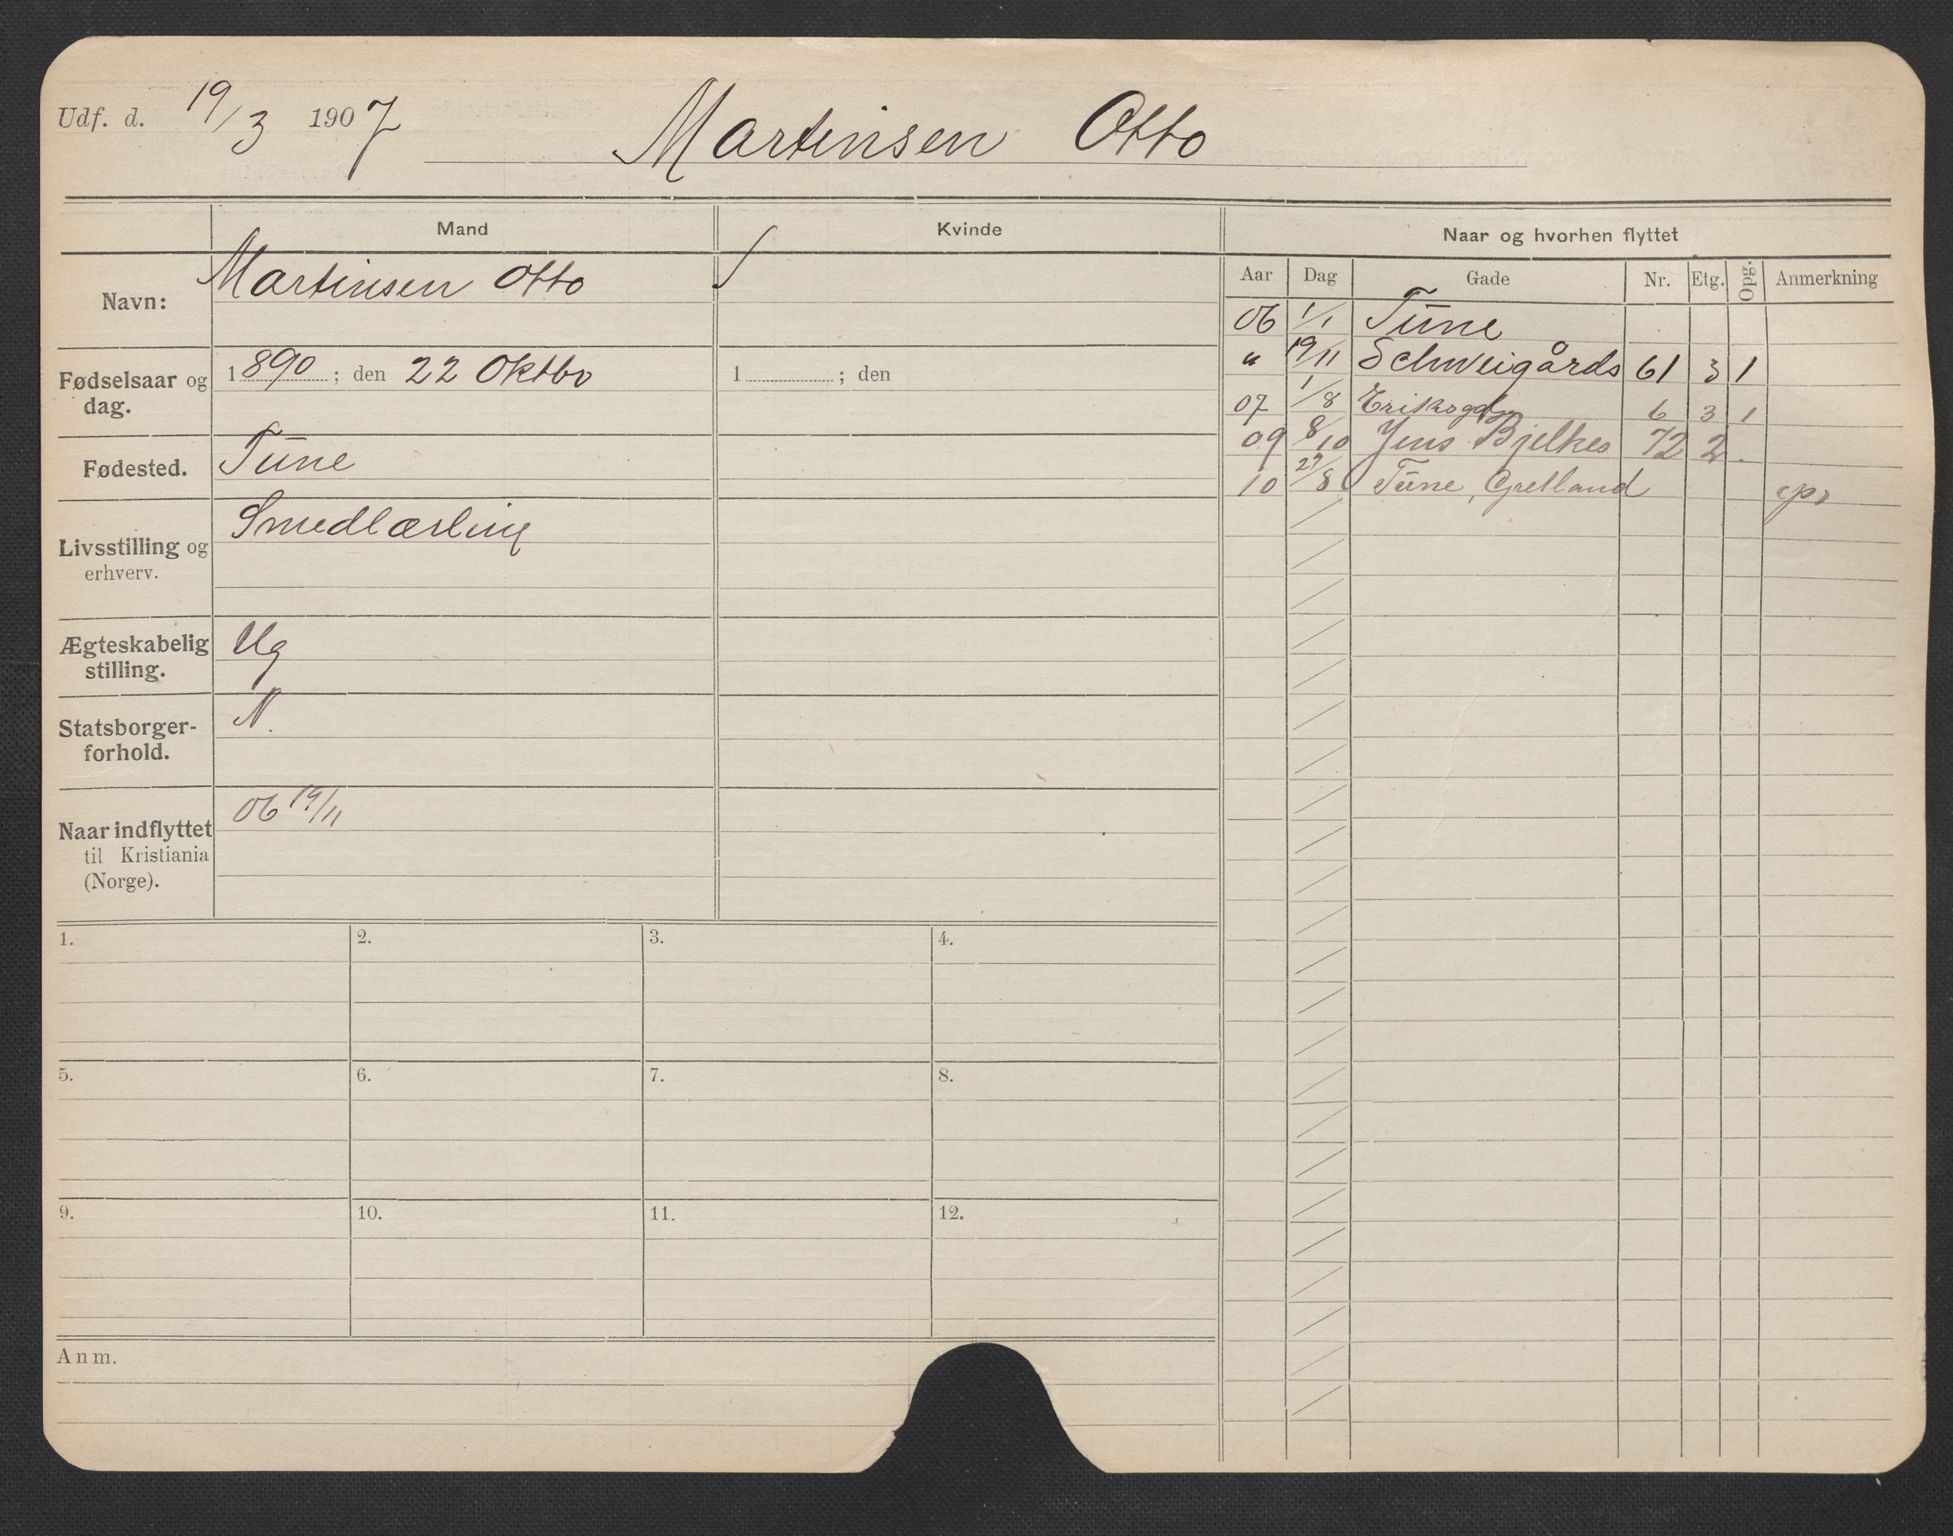 Udf. d. 19/3 1907 Martinsen Otto
Mand Kvinde Naar og hvorhen flyttet
Navn: Martinsen Otto
Fødselsaar og dag. 1890; den 22 Oktbo 1 ; den
Fødested. Tune
Livsstilling og erhverv. Smedlærling
Ægteskabelig stilling. Ug
Statsborgerforhold. N.
Naar indflyttet til Kristiania (Norge). 06 19/11
Aar Dag Gade Nr. Etg. Opg. Anmerkning
06 1/1 Tune
" 19/11 Schweigårds 61 3 1
07 1/8 Eriksgdn 6 3 1
09 8/10 Jens Bjelkes 72 2.
10 27/8 Tune, Grelland
1. 2. 3. 4.
5. 6. 7. 8.
9. 10. 11. 12.
Anm.